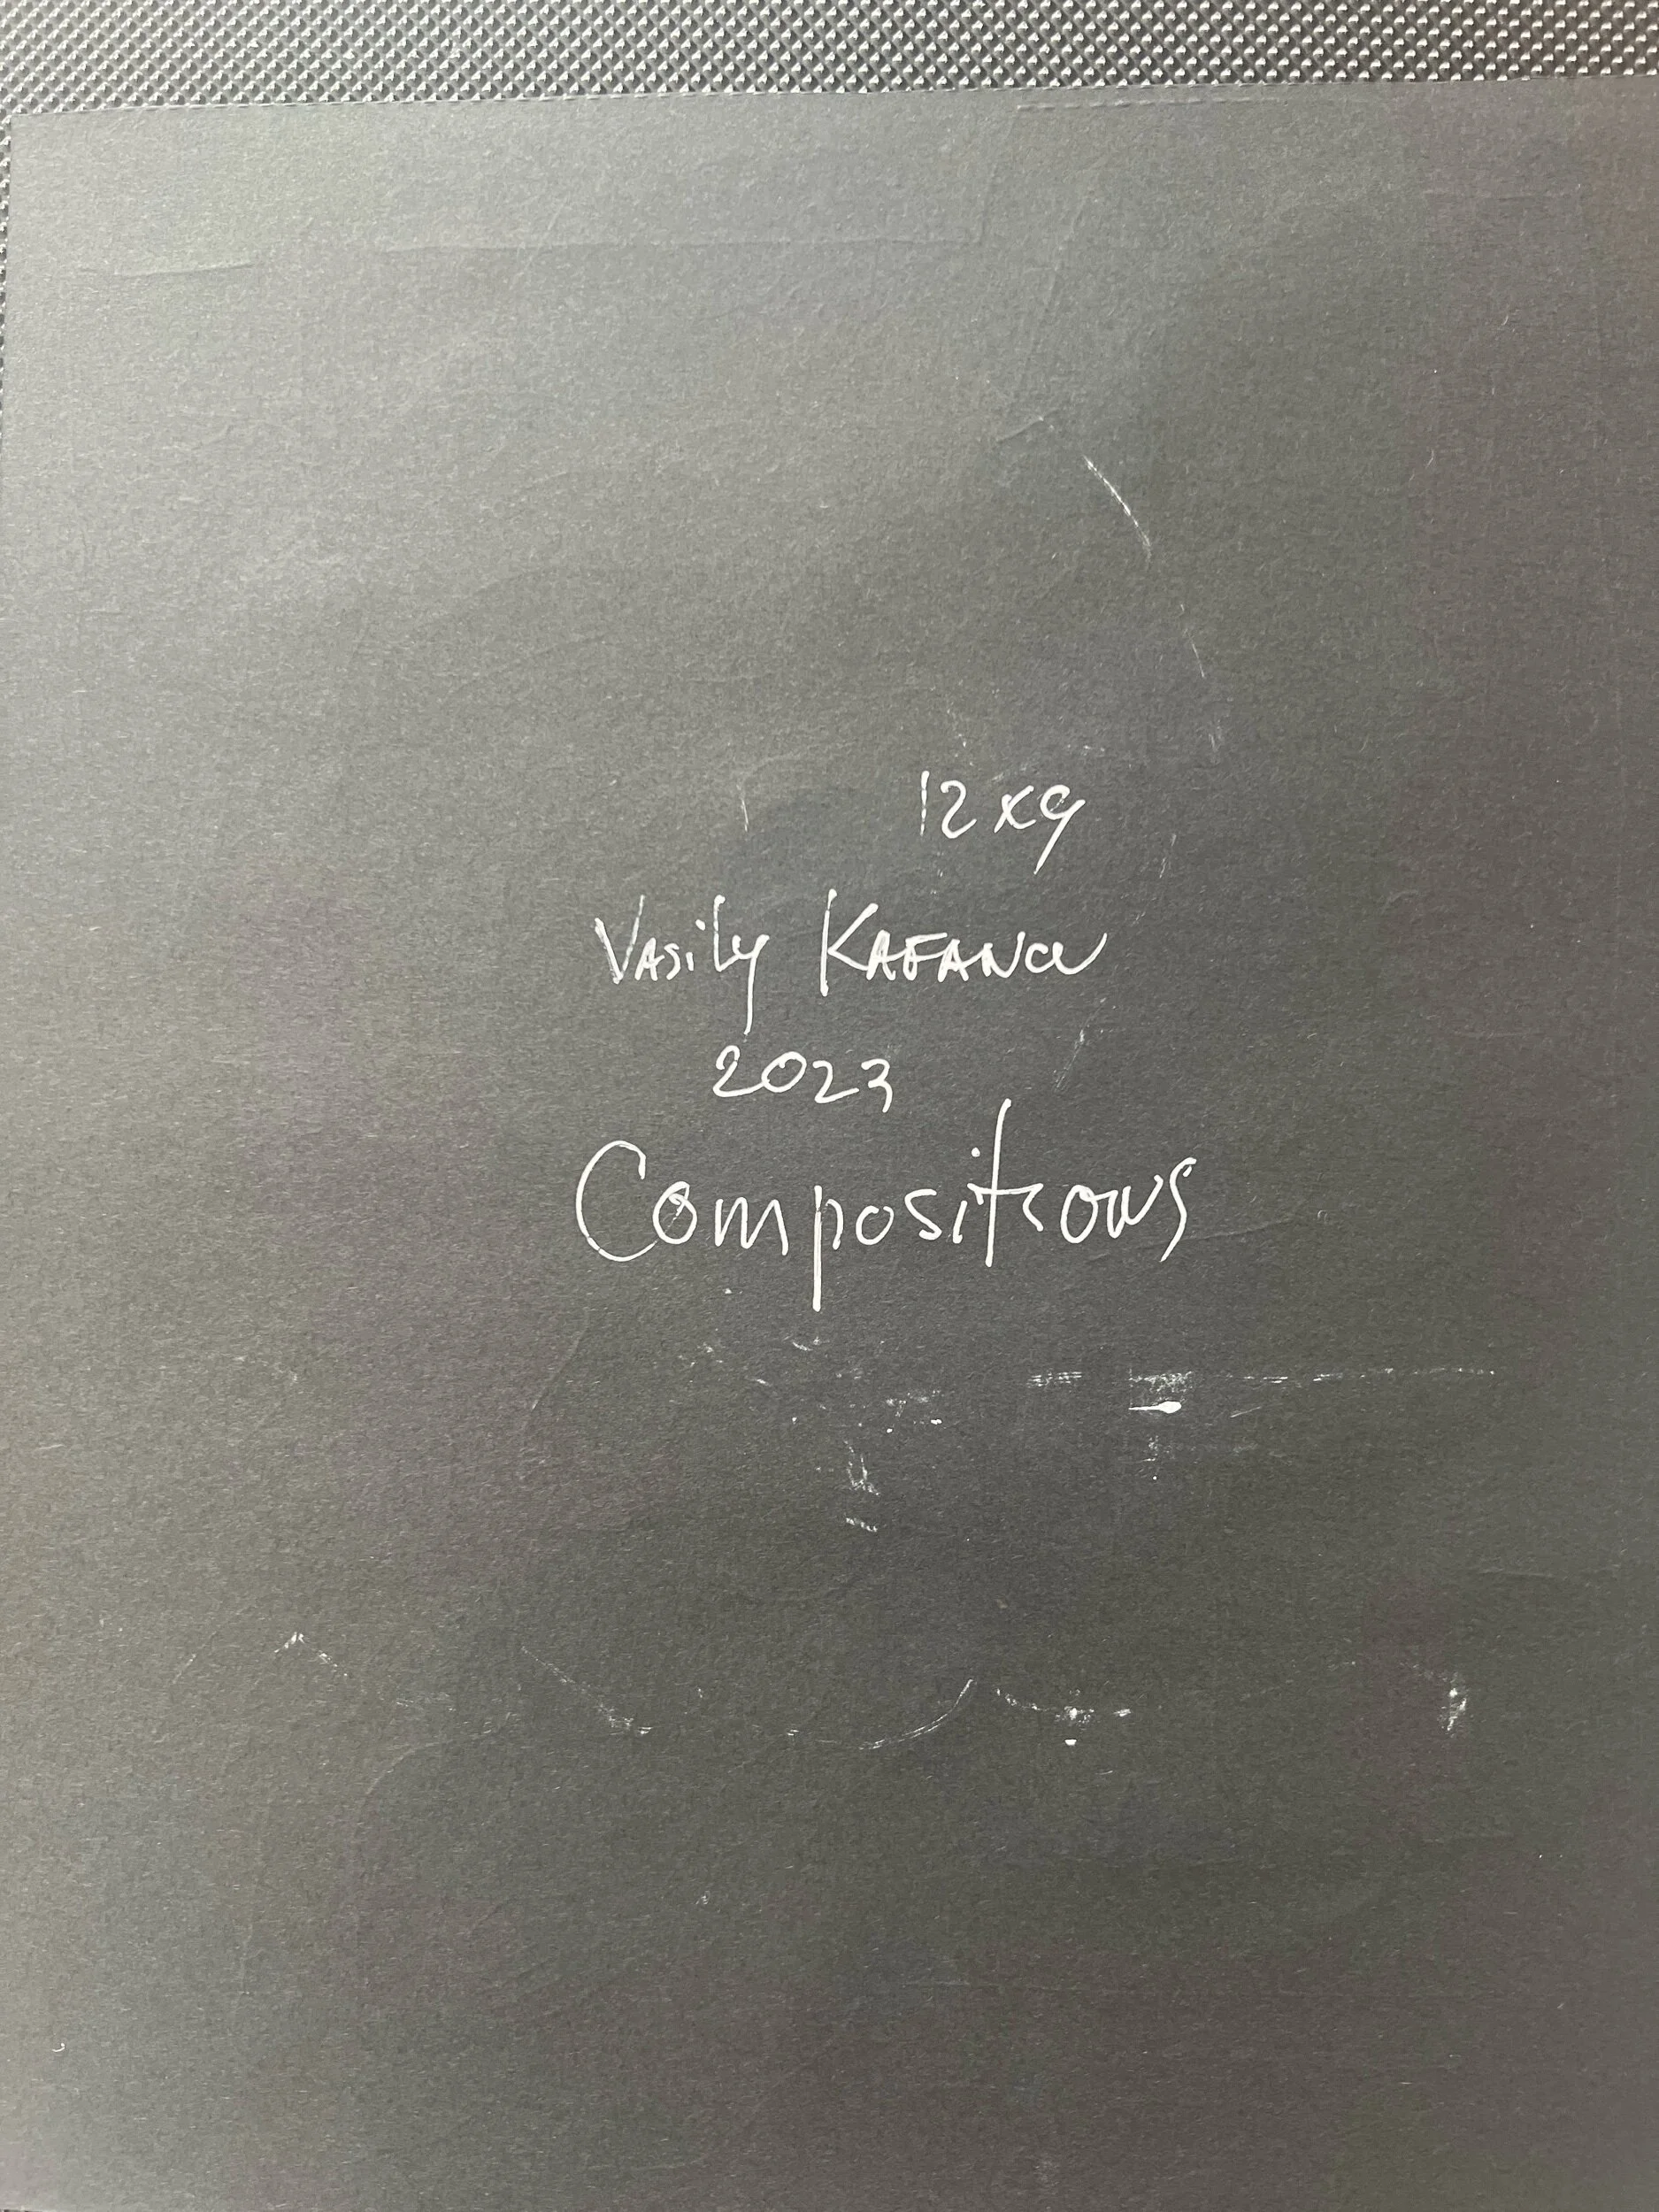 12x9
Vasily Kafanov
2023
Compositions